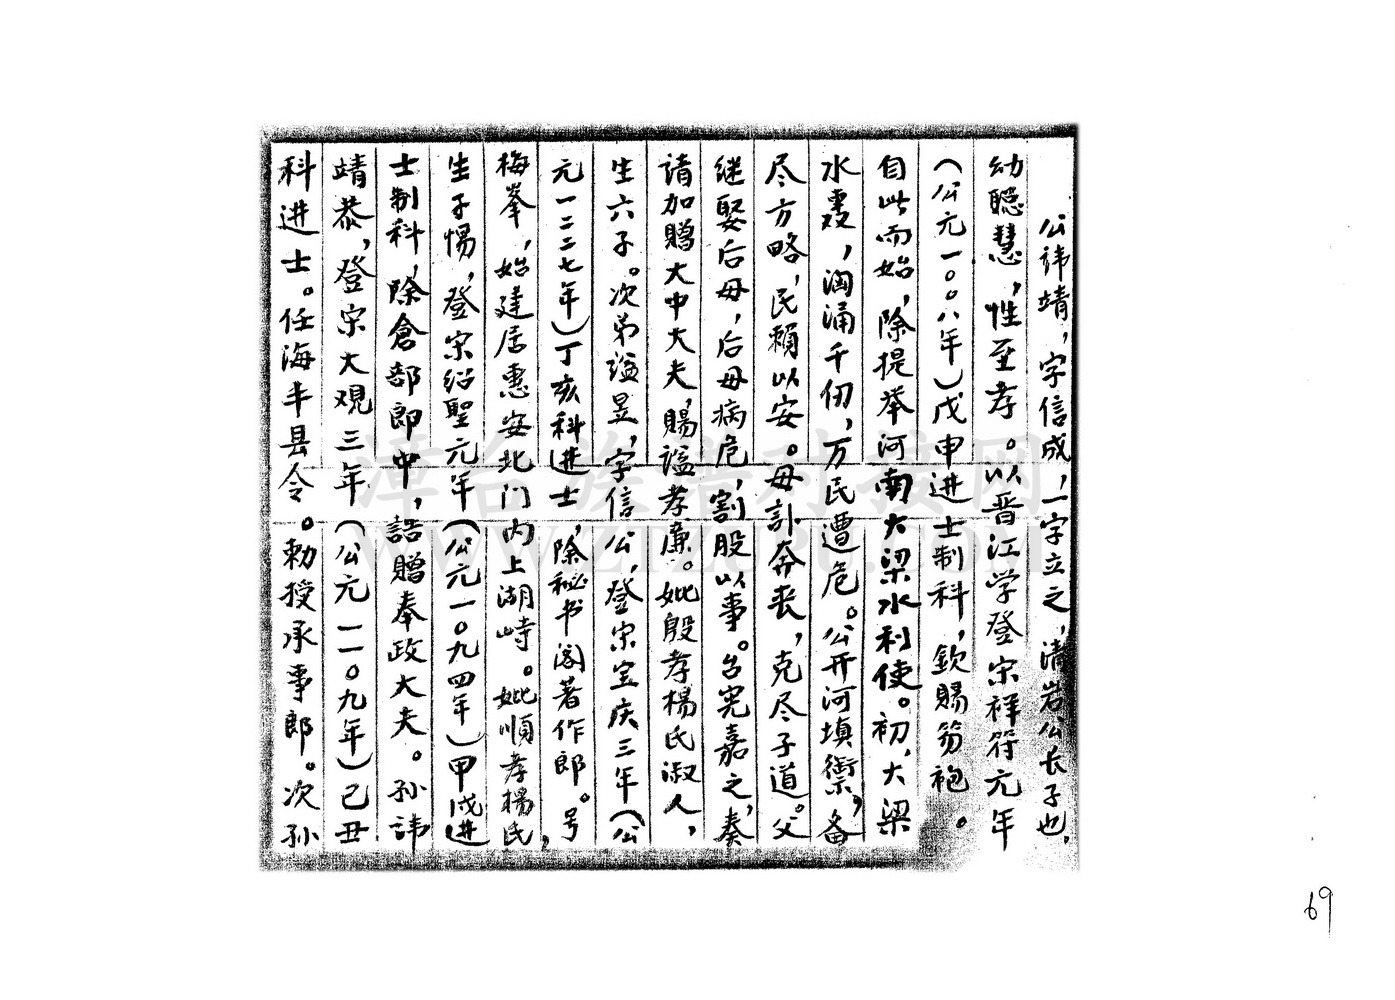 公讳靖，字信成，一字立之，清岩公长子也，
幼聪慧，性至孝。以晋江学登宋祥符元年
（公元一00八年）戊申进士制科，钦赐笏袍。
自此而始，除提举河南大梁水利使。初，大梁
水患，洶涌千仞，万民遭危。公开河填御，备
尽方略，民赖以安。母訃奔丧，克尽子道。父
继娶后母，后母病危，割股以事。台宪嘉之，奏
请加赠大中大夫，赐谥孝廉。妣殷孝杨氏淑人，
生六子。次弟谥昱，字信公，登宋宝庆三年（公
元一二二七年）丁亥科进士，除秘书阁著作郎。号
梅峯，始建居惠安北门内上湖峙。妣順孝楊氏，
生子惕，登宋绍聖元年（公元一0九四年）甲戌进
士制科，除倉部郎中，誥贈奉政大夫。孙諱
靖恭，登宋大观三年（公元一一0九年）己丑
科进士。任海丰县令。勅授承事郎。次孙
漳台族谱对接网
WWW.ZTZUPU.COM
69